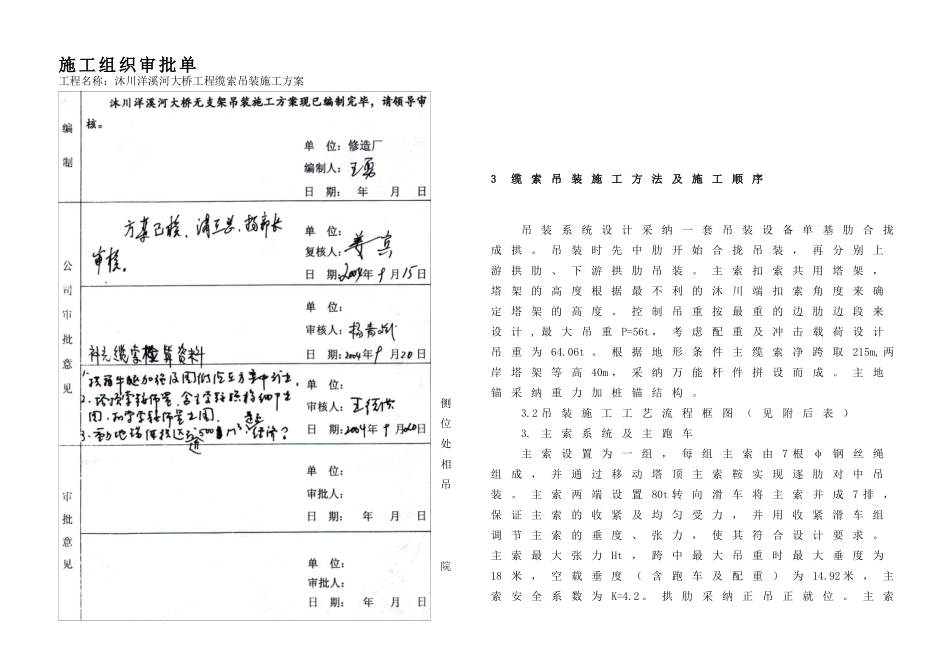 施工组织审批单
工程名称: 沐川洋溪河大桥工程缆索吊装施工方案
编制
沐川洋溪河大桥无支架吊装施工方案现已编制完毕，请领导审
核。
单 位：修造厂
编制人：王勇
日 期： 年 月 日
公司审批意见
方案已核、
审核。
单 位：
复核人：姜宾
日 期：2004年9月15日
补充缆索检算资料
单 位：
审核人：
日 期：2004年9月20日
单 位：
审核人：
日 期：2004年9月20日
审批意见
单 位：
审批人：
日 期： 年 月 日
单 位：
审批人：
日 期： 年 月 日
侧
位
处
相
吊
院
3 缆索吊装施工方法及施工顺序
吊装系统设计采纳一套吊装设备单基肋合拢
成拱。吊装时先中肋开始合拢吊装，再分别上
游拱肋、下游拱肋吊装。主索扣索共用塔架，
塔架的高度根据最不利的沐川端扣索角度来确
定塔架的高度。控制吊重按最重的边肋边段来
设计,最大吊重P=56t，考虑配重及冲击载荷设计
吊重为64.06t。根据地形条件主缆索净跨取215m,两
岸塔架等高40m，采纳万能杆件拼设而成。主地
锚采纳重力加桩锚结构。
3.2吊装施工工艺流程框图（见附后表）
3.主索系统及主跑车
主索设置为一组，每组主索由7根φ钢丝绳
组成，并通过移动塔顶主索鞍实现逐肋对中吊
装。主索两端设置80t转向滑车将主索并成7排，
保证主索的收紧及均匀受力，并用收紧滑车组
调节主索的垂度、张力，使其符合设计要求。
主索最大张力Ht，跨中最大吊重时最大垂度为
18米，空载垂度（含跑车及配重）为14.92米，主
索安全系数为K=4.2。拱肋采纳正吊正就位。主索